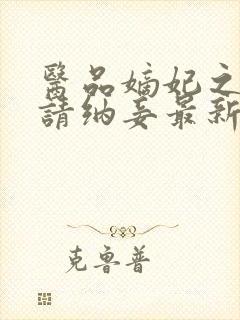 醫品嫡妃之
請納妾最新
克魯普